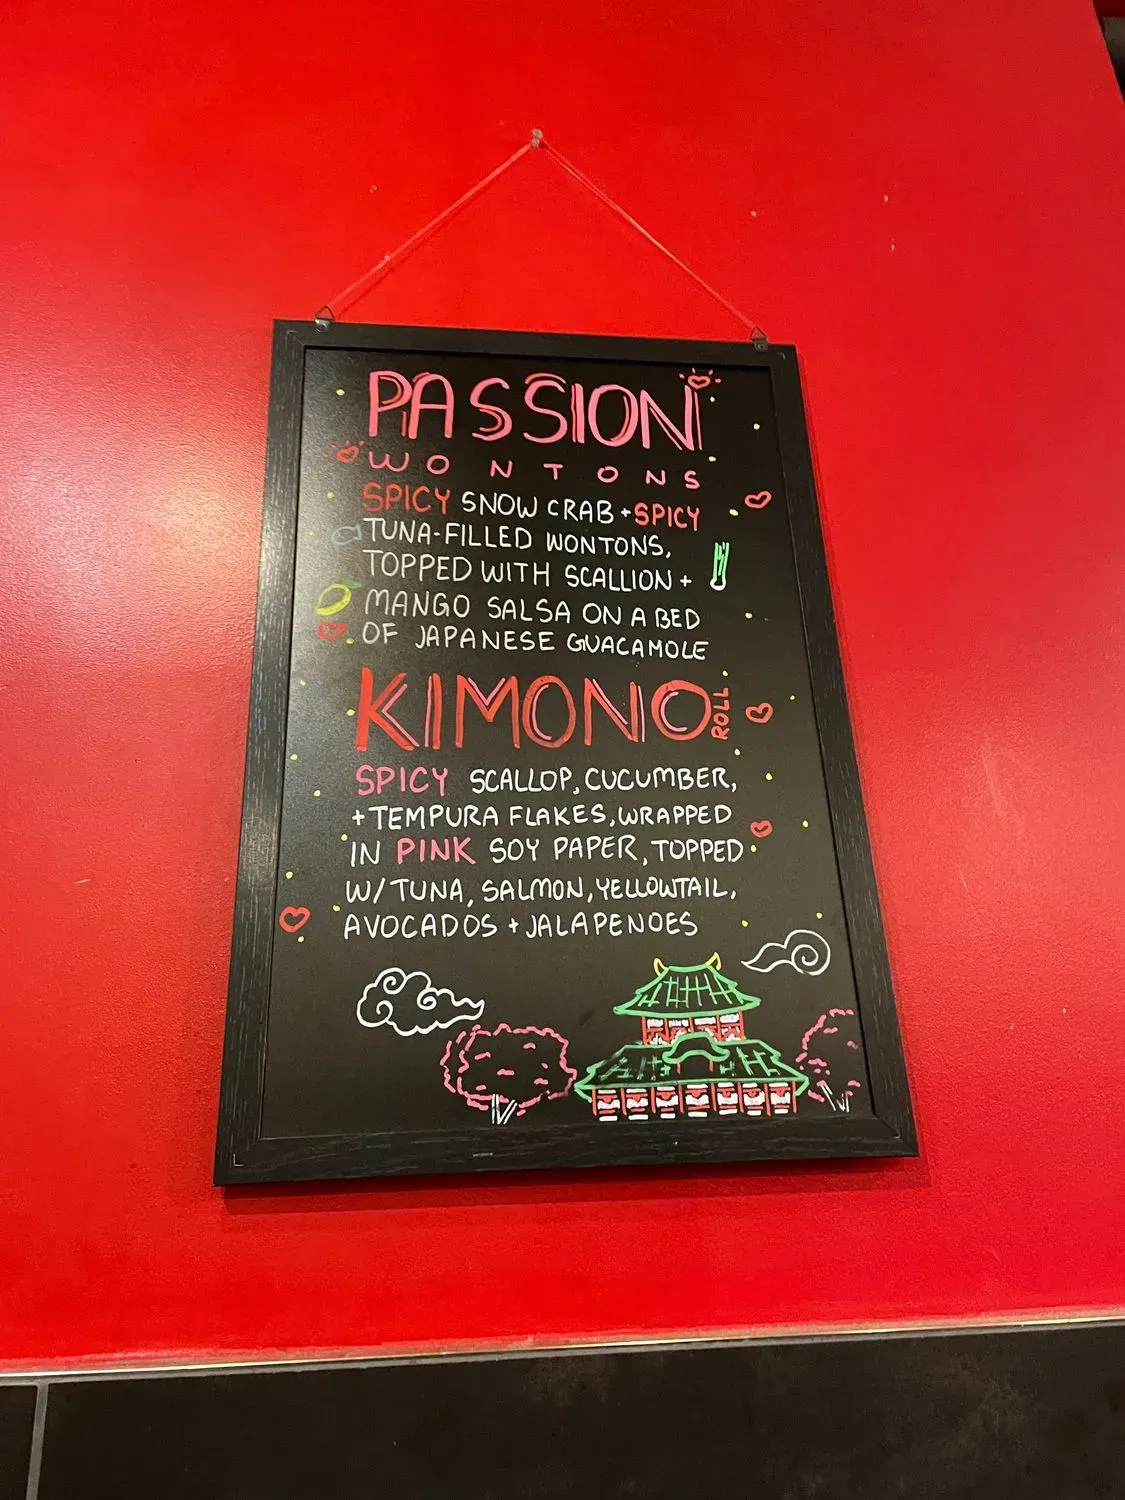 PASSION
WONTONS
SPICY SNOW CRAB + SPICY
TUNA-FILLED WONTONS,
TOPPED WITH SCALLION +
MANGO SALSA ON A BED
OF JAPANESE GUACAMOLE
KIMONO ROLL
SPICY SCALLOP, CUCUMBER,
+ TEMPURA FLAKES, WRAPPED
IN PINK SOY PAPER, TOPPED
W/ TUNA, SALMON, YELLOWTAIL,
AVOCADOS + JALAPENOES